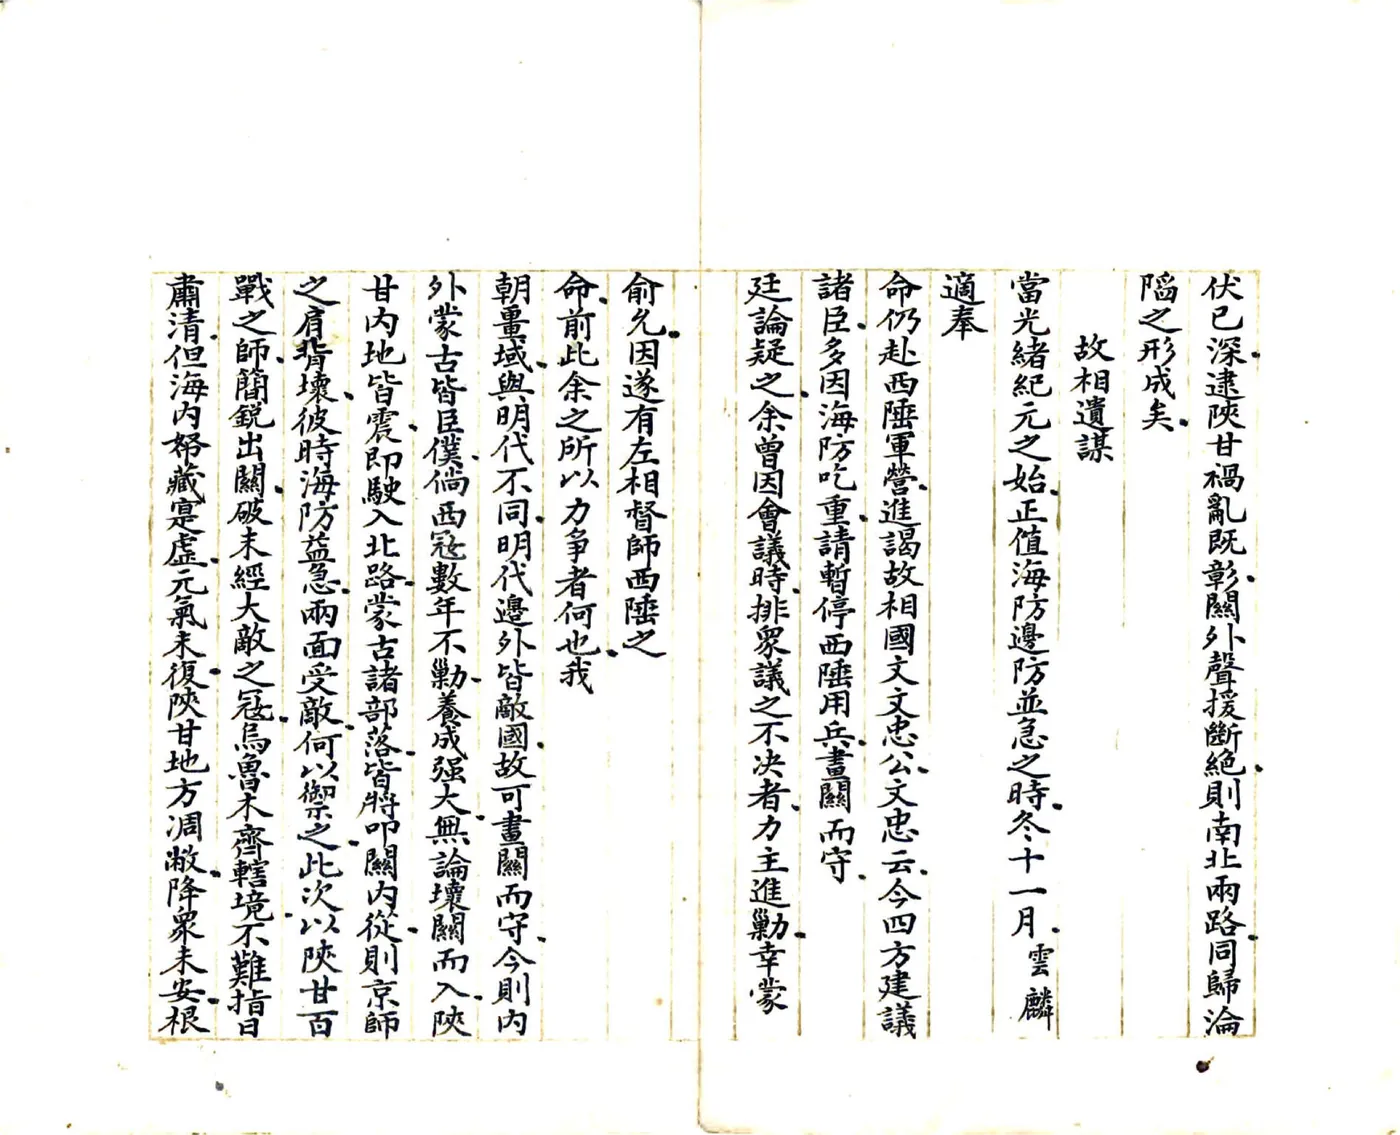 伏已深逮陝甘禍亂既彰關外聲援斷絕則南北兩路同歸淪
陷之形成矣
故相遺謀
當光緒紀元之始正值海防邊防並急之時冬十一月雲麟
適奉
命仍赴西陲軍營進謁故相國文文忠公文忠云今四方建議
諸臣多因海防吃重請暫停西陲用兵畫關而守
廷論疑之余曾因會議時排衆議之不決者力主進勦幸蒙
俞允因遂有左相督師西陲之
命前此余之所以力爭者何也我
朝畺域與明代不同明代邊外皆敵國故可畫關而守今則內
外蒙古皆臣僕倘西寇數年不勦養成强大無論壞關而入陝
甘內地皆震即駛入北路蒙古諸部落皆將叩關內從則京師
之肩背壞彼時海防益急兩面受敵何以禦之此次以陝甘百
戰之師簡銳出關破未經大敵之寇烏魯木齊轄境不難指日
肅清但海內帑藏寔虛元氣未復陝甘地方凋敝降衆未安根